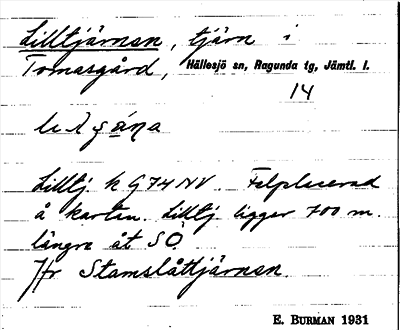 Lilltjärnen, tjärn i
Tomasgård, Hällesjö sn, Ragunda tg, Jämtl. l.
14
Lilltj. h G74 NV. Felplacerad
å kartan. Lilltj. ligger 700 m.
längre åt SÖ.
Jfr Stamslåttjärnen.
E. BURMAN 1931